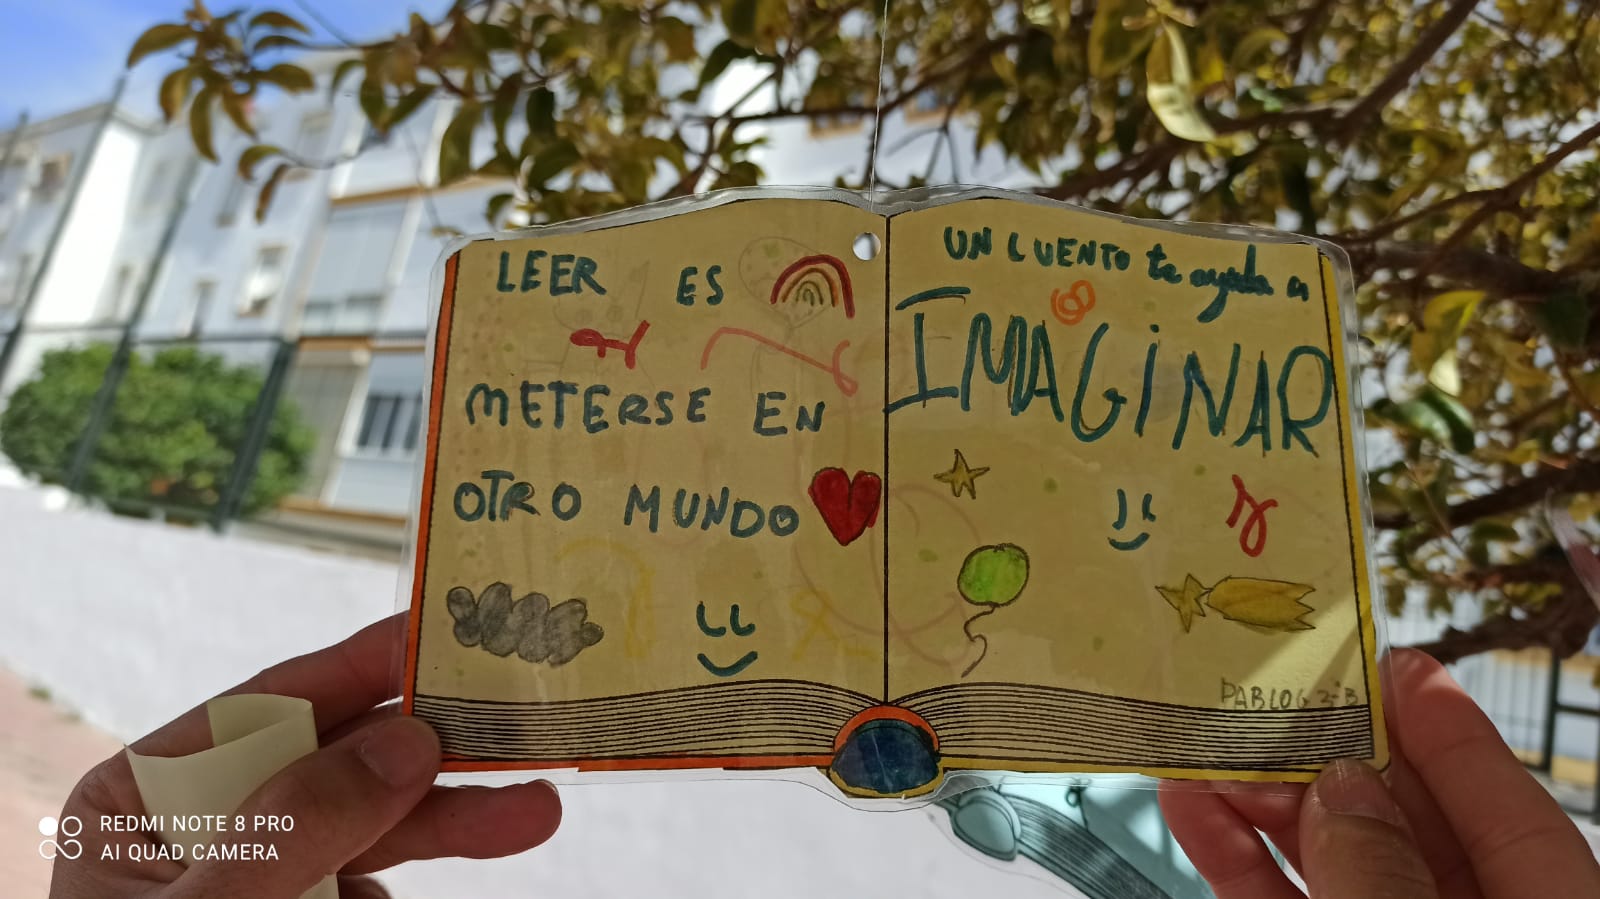 LEER ES
METERSE EN
OTRO MUNDO
UN CUENTO te ayuda a
IMAGiNAR
PABLO G 2º B
REDMI NOTE 8 PRO
AI QUAD CAMERA